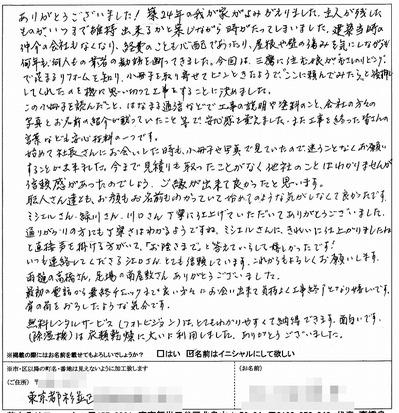 ありがとうございました！築24年の我が家がよみがえりました。主人が残した
ものがいつまで維持出来るかと案じながら時がたってしまいました。建築当時の
仲介の会社もなくなり、経費のことも心配であったり、屋根や壁の痛みを気にしながらも
何年も何人もの業者の勧誘を断ってきました。今回は、三鷹に住む娘が
で花まるリフォームを知り、小冊子を取り寄せてピンときたようで"ここに頼んでみたら"と後押し
してくれたのを機に思い切って工事をすることに決めました。
この小冊子を読んだこと、はなまる通信などで工事の説明や塗料のこと、会社の方々の
写真とお名前の紹介が載っていたこと等で安心感を覚えました。また工事を終った皆さんの
言葉なども安心材料の一つです。
始めて社長さんにお会いした時も、小冊子や写真で見ていたので迷うことなくお願い
することが出来ました。今まで見積りも取ったことがなく他社のことはわかりませんが
信頼感があったのでしょう、ご縁が出来て良かったと思います。
職人さん達とも、お顔もお名前もわかっていて始めてのような気がしなくて良かったです。
ミシエルさん、緑川さん、川口さん丁寧に仕上げていただいてありがとうございました。
通りがかりの方にも丁寧さはわかるようですね。ミシエルさんに、きれいに仕上がりましたね
と直接声を掛ける方がいて、"お陰さまで"と答えていらして嬉しかったです！
いつも連絡してくださる江口さん、とても信頼しています。これからもよろしくお願いします。
雨樋の高橋さん、足場の南風敷さん ありがとうございました。
最初の電話から最終チェックまで良い方々にお会い出来て気持よく工事終了となり嬉しいです。
肩の荷をおろしたような気分です。
無料レンタルサービス（フォトビジョン）は、とてもわかりやすくて納得できます。面白いです。
（除湿機）は衣類乾燥に大いに利用しました。ありがとうございました。
※掲載の際にはお名前を載せてもよろしいでしょうか？ □はい ☑名前はイニシャルにして欲しい
※市・区以降の町名・番地は見えないように加工致します
（ご住所）〒
（お名前）
東京都杉並区